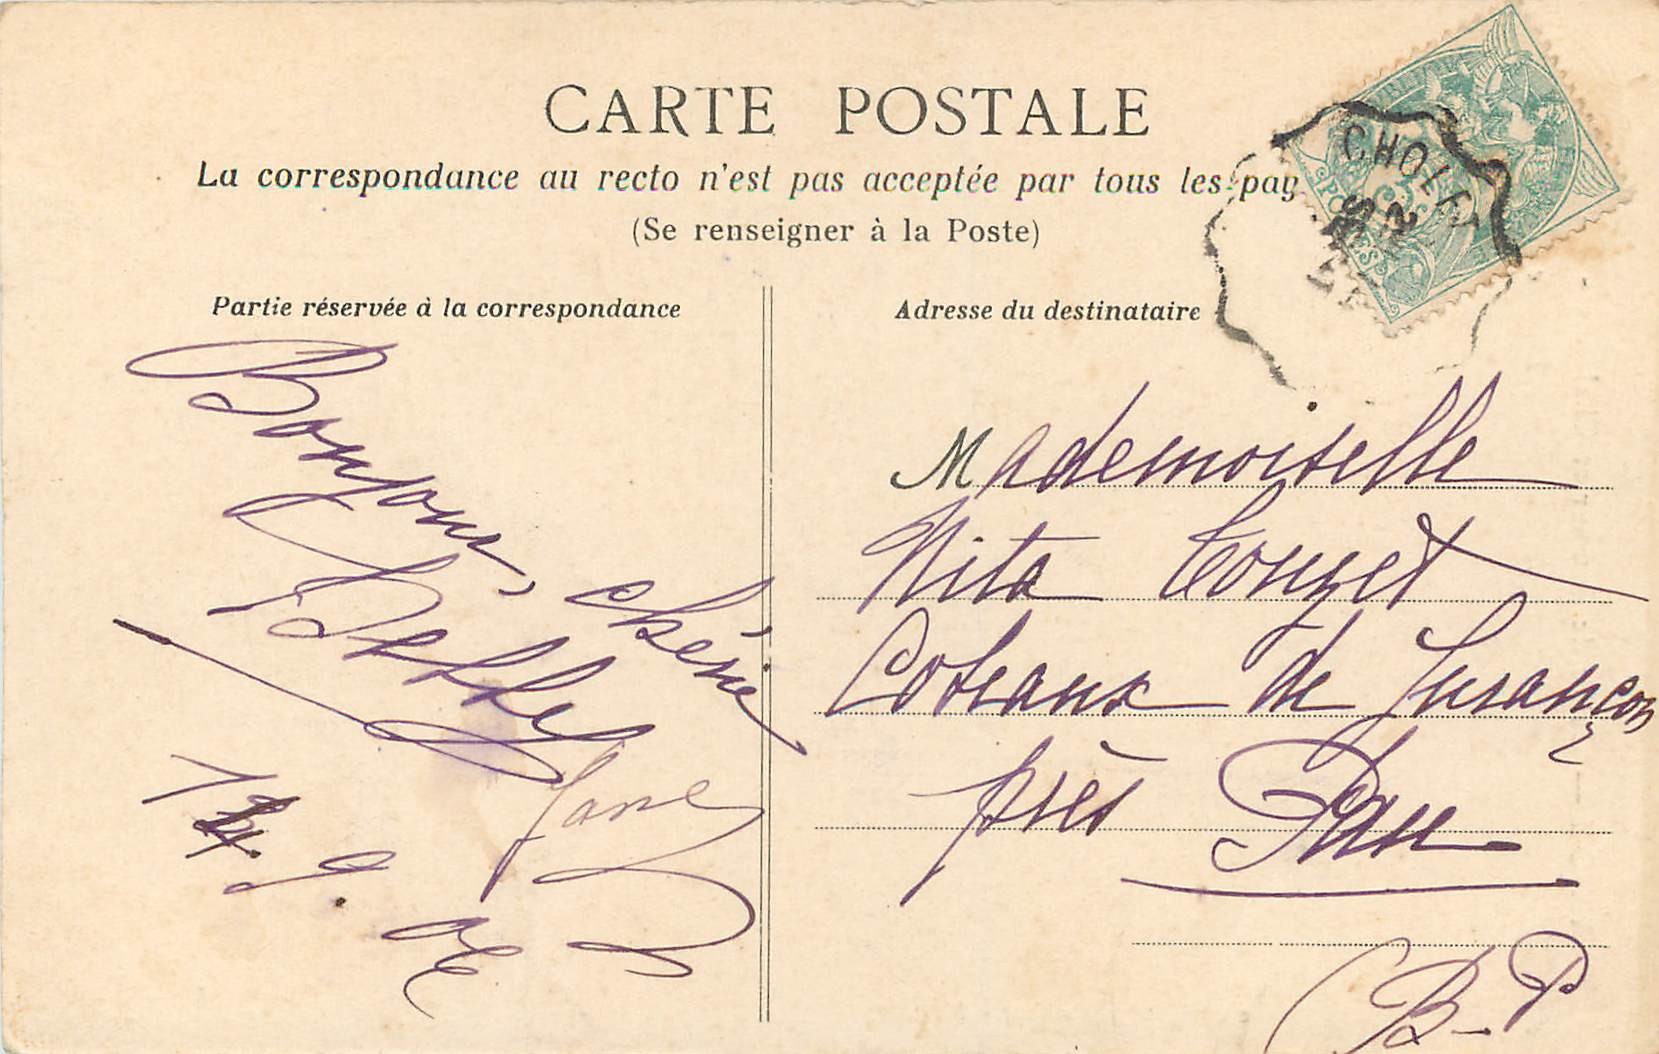 CARTE POSTALE
La correspondance au recto n'est pas acceptée par tous les pay
(Se renseigner à la Poste)
Partie réservée à la correspondance
Bonjour, chérie
Jane
9.
Adresse du destinataire
CHOLET
POSTES
Mademoiselle
Nita Touzet
Coteaux de Jurançon
près Pau
(B-P